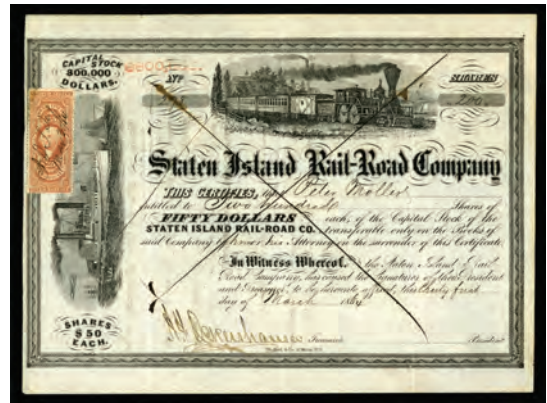 CAPITAL STOCK
800,000
DOLLARS.
No
SHARES
200
Staten Island Rail-Road Company
THIS CERTIFIES, that Peter Moller
entitled to Two hundred Shares of
FIFTY DOLLARS each, of the Capital Stock of the
STATEN ISLAND RAIL-ROAD CO. transferable only on the Books of
said Company by him or his Attorney on the surrender of this Certificate.
In Witness Whereof, the Staten Island Rail
Road Company, has caused the Signatures of their President
and Treasurer, to be hereunto affixed, this thirty first
day of March 1864
Treasurer
President
SHARES
$50
EACH.